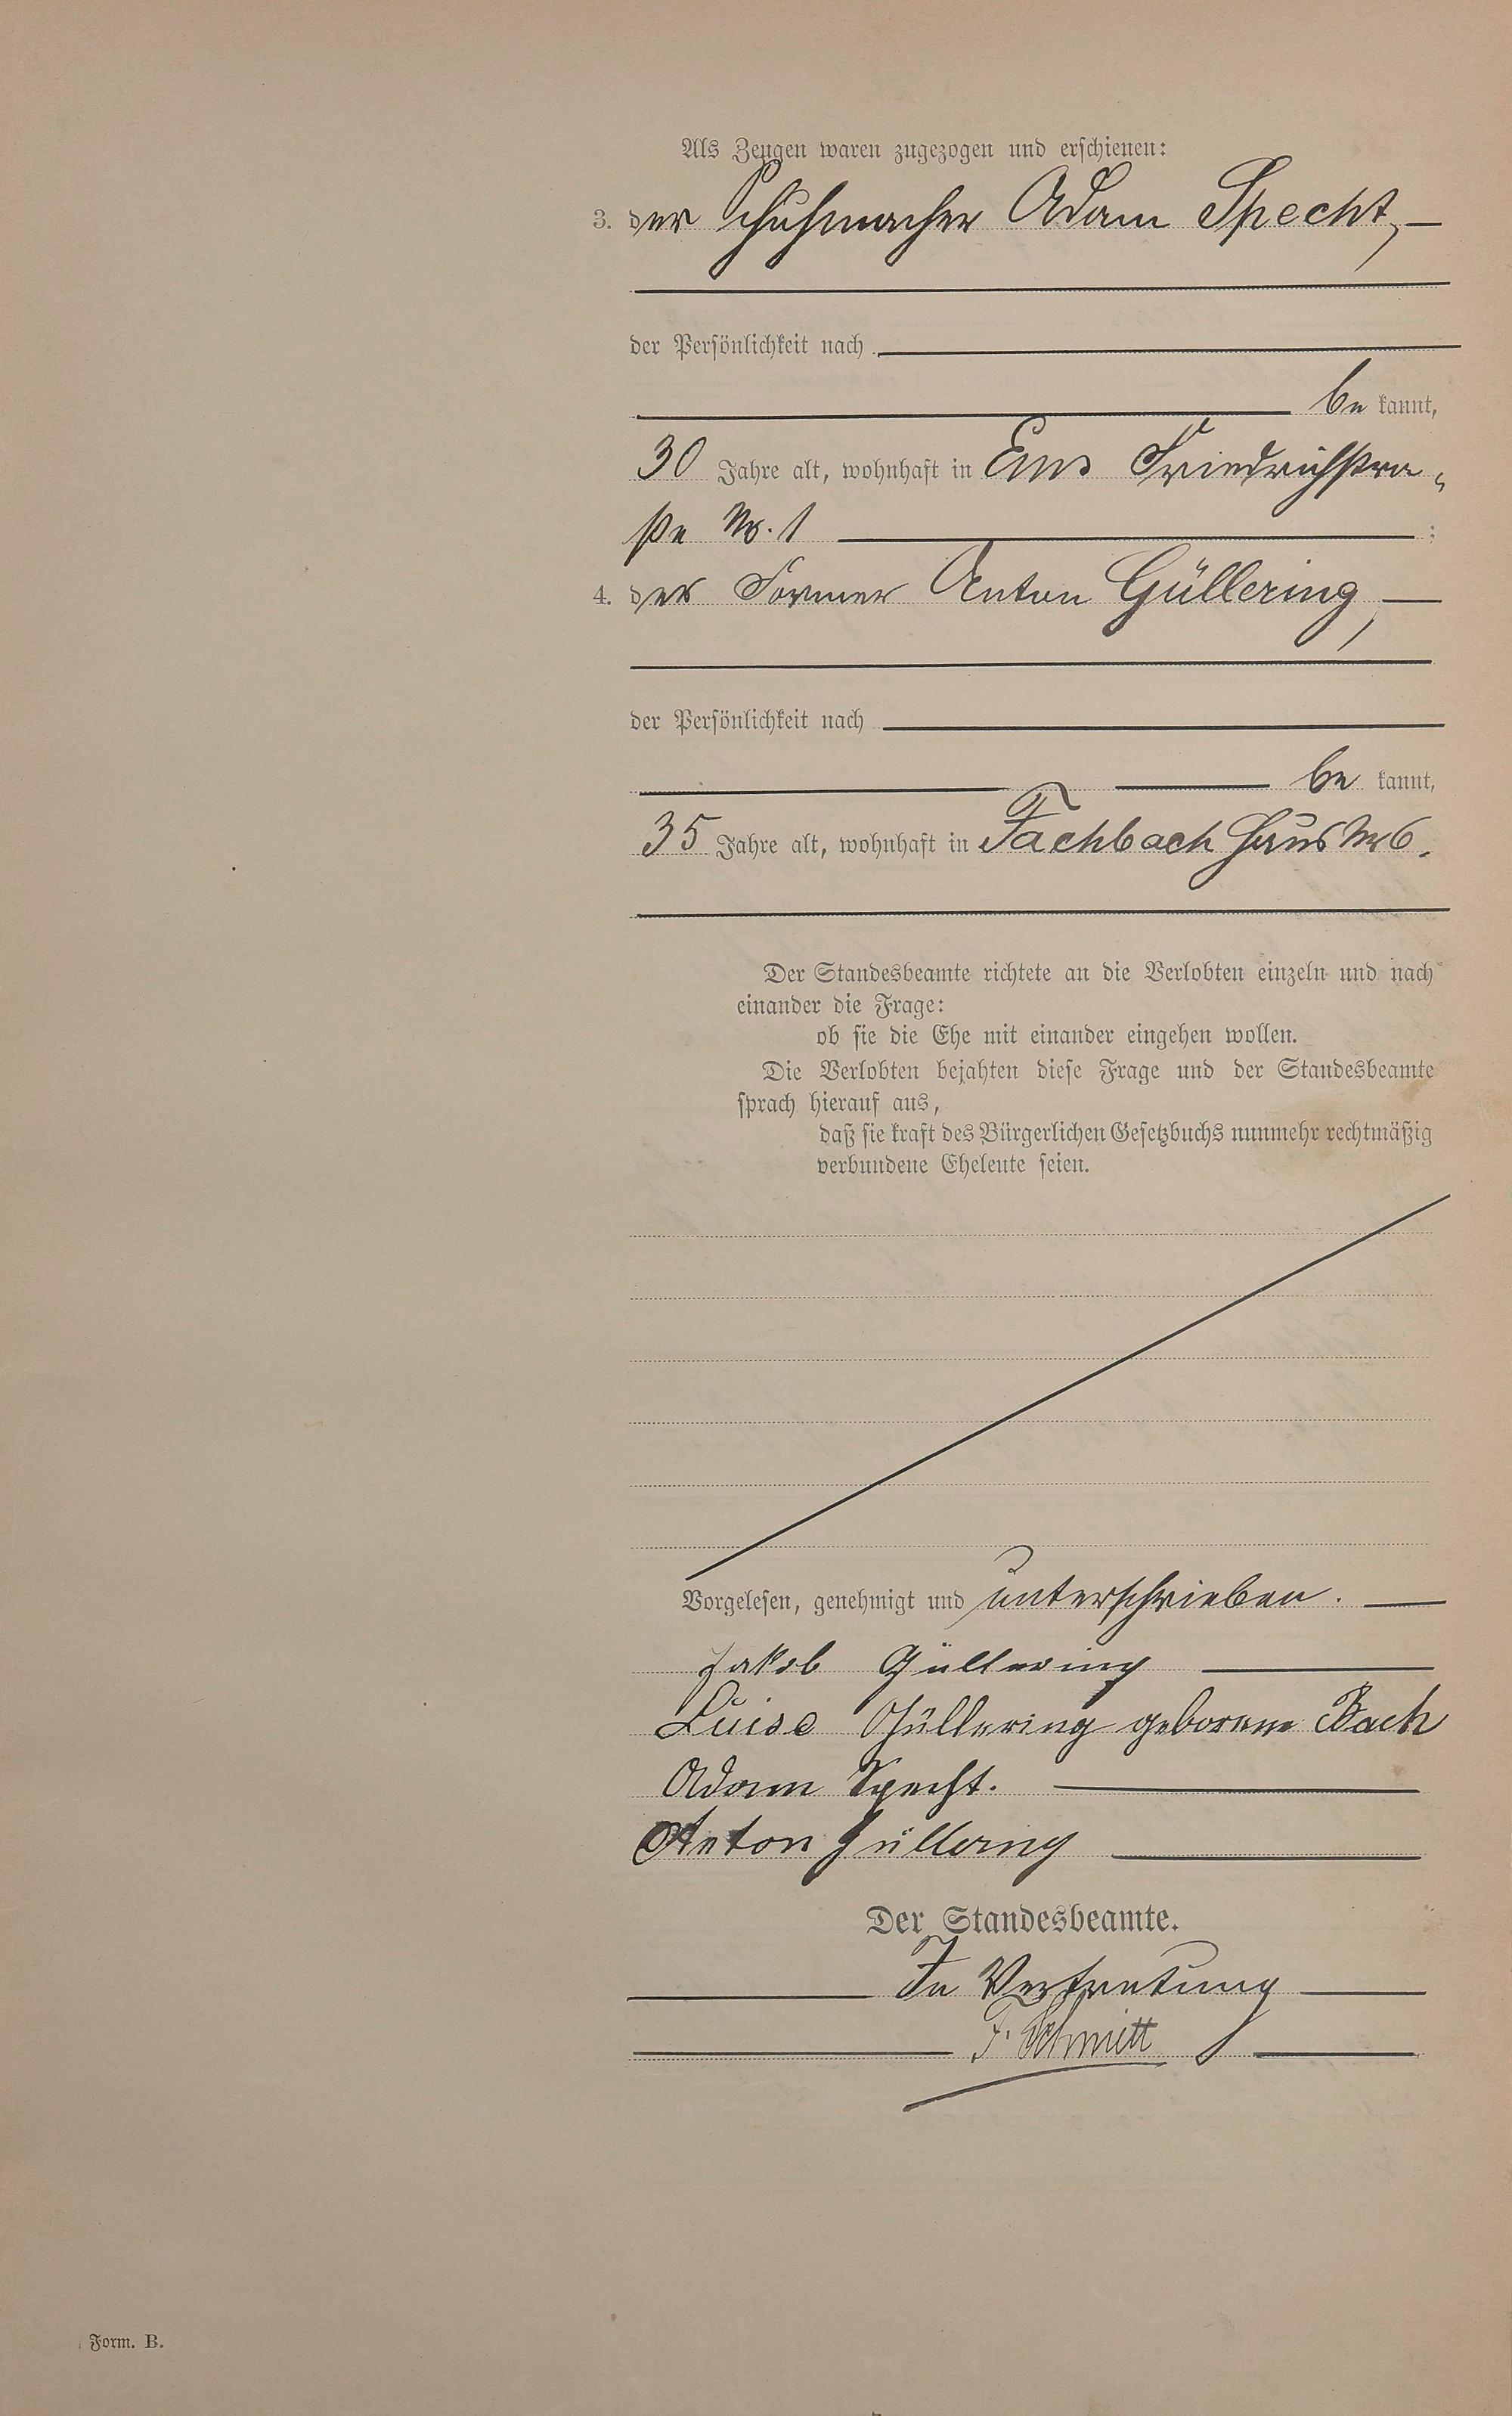 Als Zeugen waren zugezogen und erschienen:
3. der Schuhmacher Adam Specht,
der Persönlichkeit nach
be kannt,
30 Jahre alt, wohnhaft in Ems Friedrichstra„
ße Nr. 1 ;
4. der Former Anton Güllering,
der Persönlichkeit nach
be kannt,
35 Jahre alt, wohnhaft in Fachbach Haus Nr 6.
Der Standesbeamte richtete an die Verlobten einzeln und nach
einander die Frage:
ob sie die Ehe mit einander eingehen wollen.
Die Verlobten bejahten diese Frage und der Standesbeamte
sprach hierauf aus,
daß sie kraft des Bürgerlichen Gesetzbuchs nunmehr rechtmäßig
verbundene Eheleute seien.
Vorgelesen, genehmigt und unterschrieben.
Jakob Güllering
Luise Güllering geborene Bach
Adam Specht.
Anton Güllering
Der Standesbeamte.
In Vertretung
F. Schmitt
Form. B.